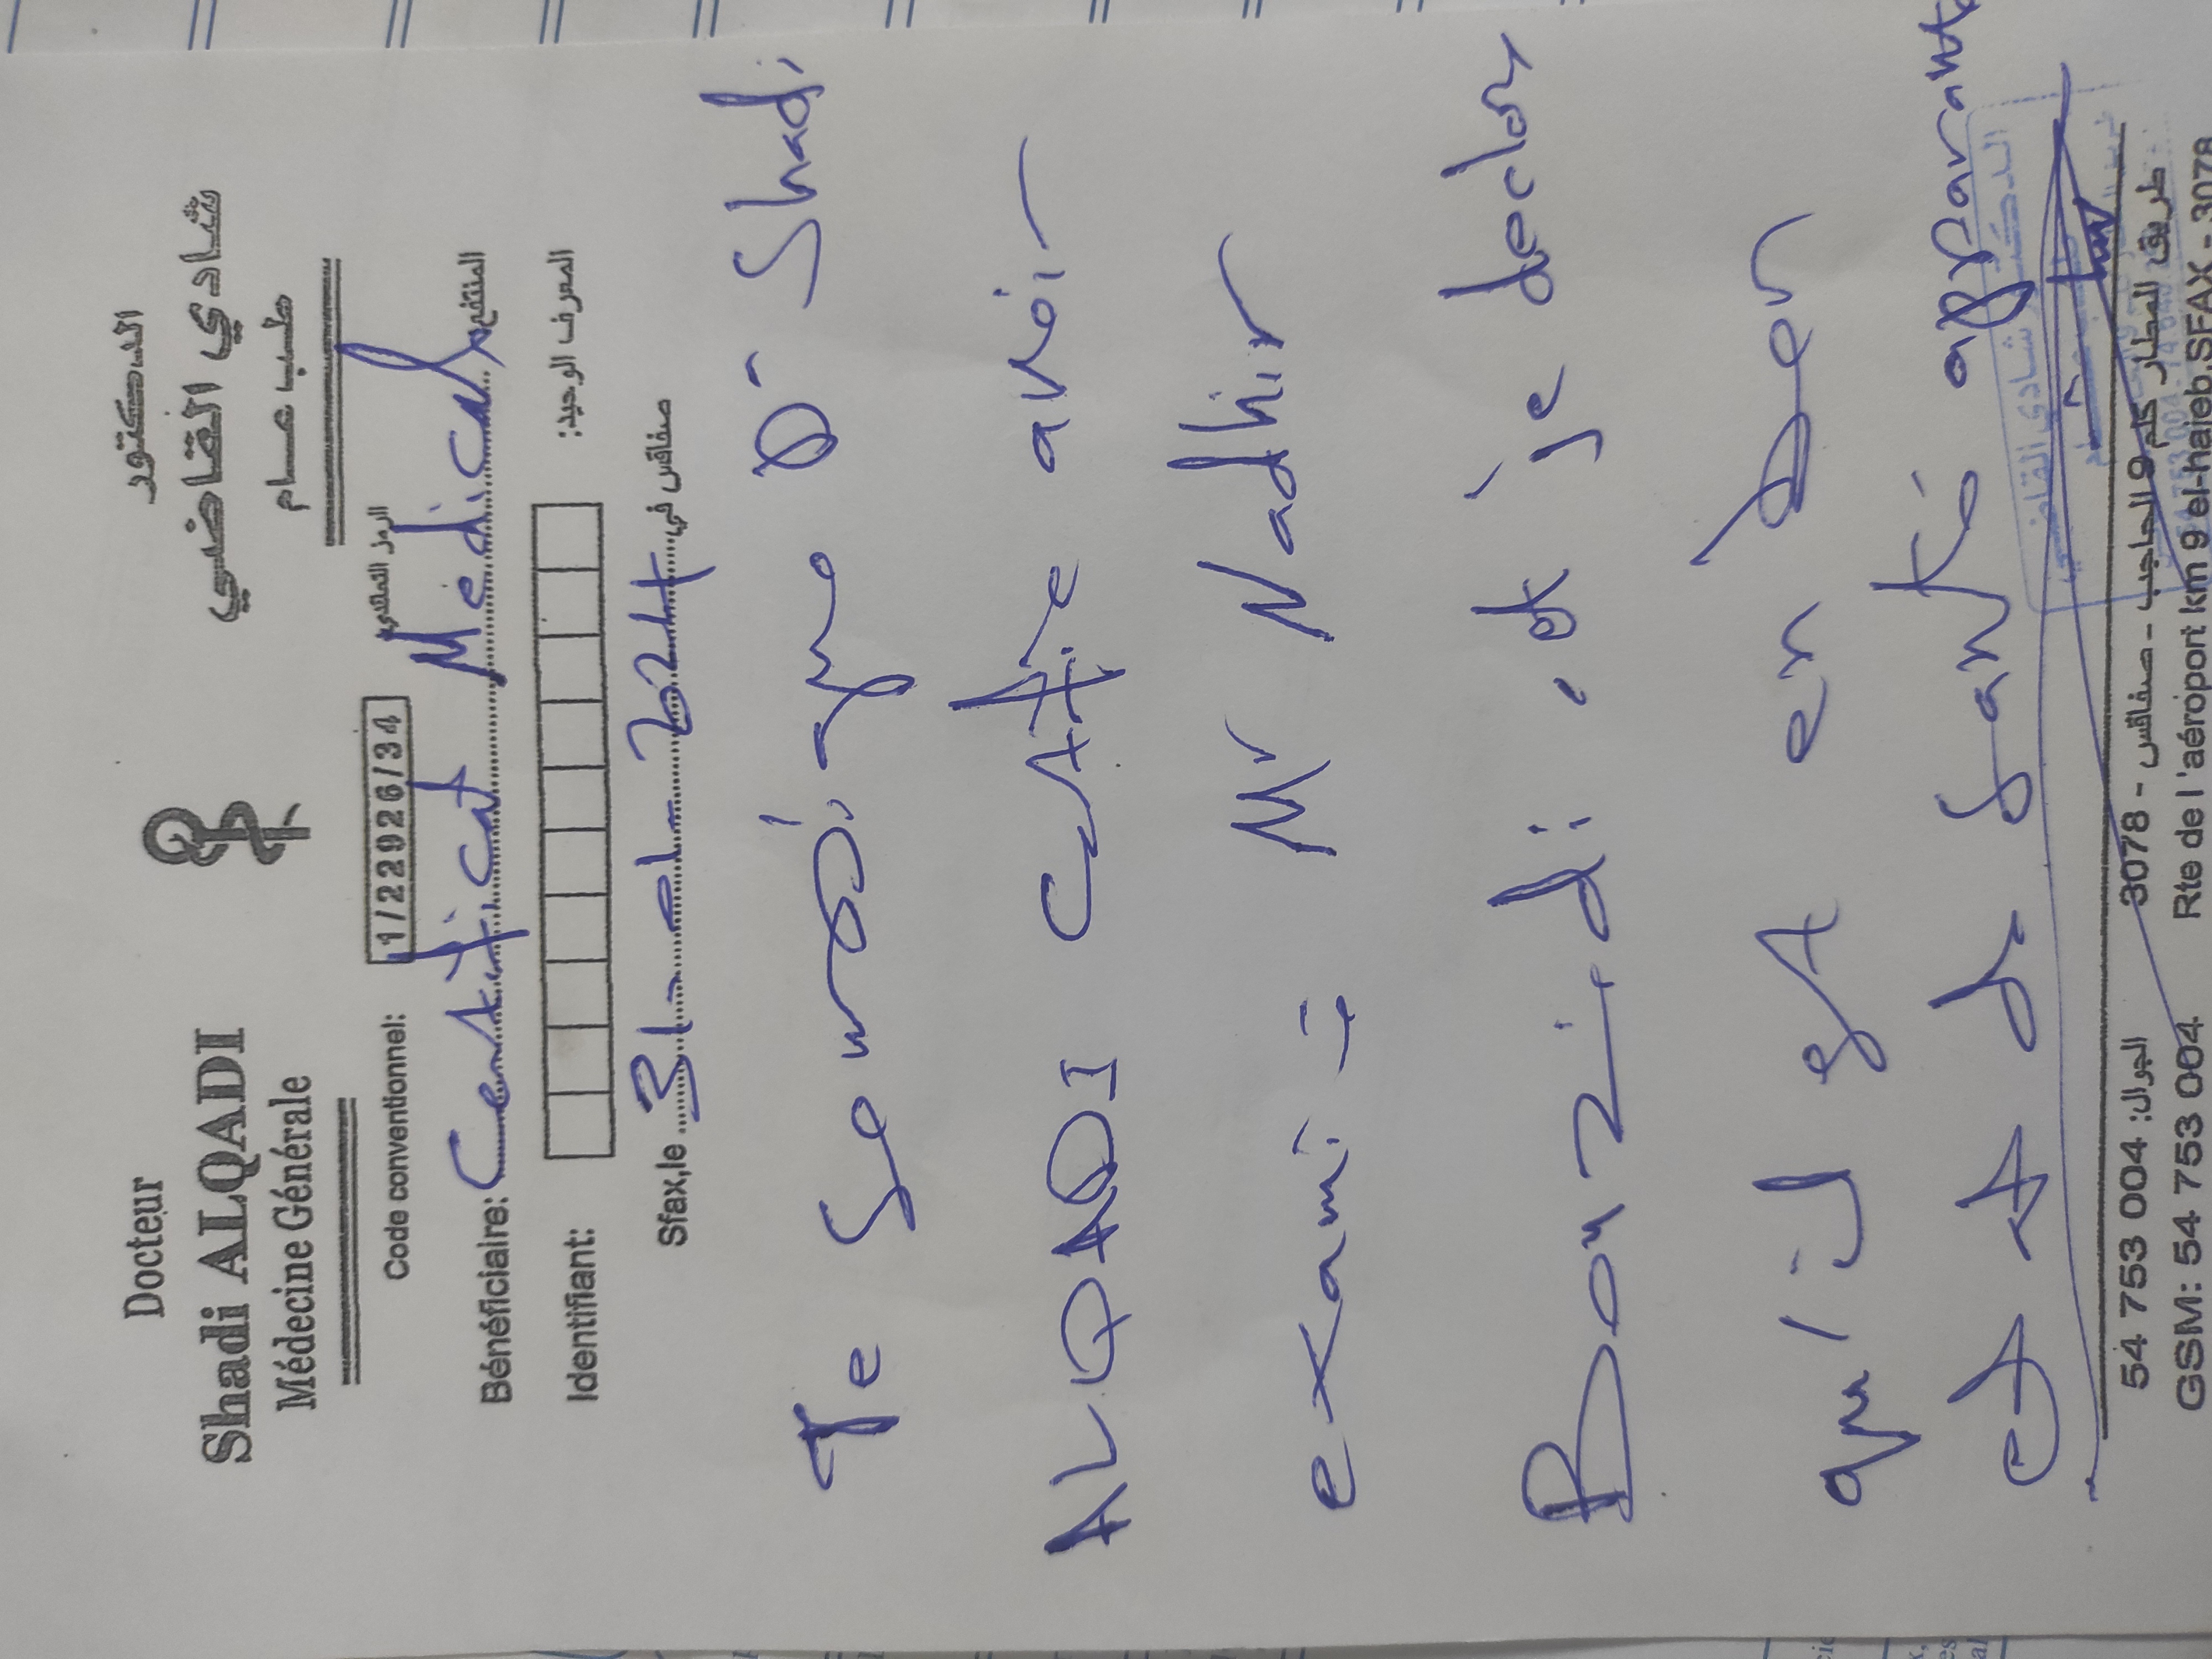 Docteur
Shadi ALQADI
Médecine Générale
الدكتور
شادي القاضي
طبيب عام
Code conventionnel: 1/22926/34 الرمز التعاقدي
Bénéficiaire: Certificat Medicale المنتفع
Identifiant: المعرف الوحيد:
Sfax,le 31-01- صفاقس في
Je sousigne Dr Shadi
ALQADI Certifie avoir
examiné Mr Nadhir
Bouzidi, et je declar
qu'il est en bon
etat de santé apparante
الدكتور شادي القاضي
54 753 004 الجوال: 3078 - طريق المطار كلم 9 الحاجب - صفاقس -
GSM: 54 753 004 Rte de l'aéroport km 9 el-hajeb.SFAX - 3078